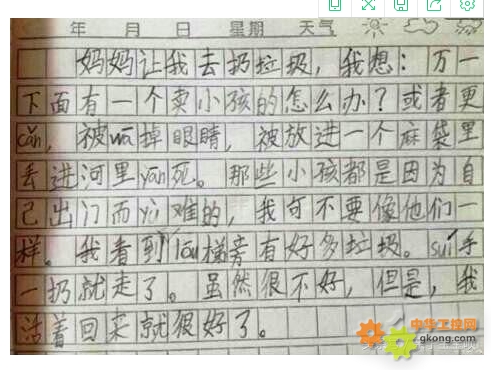 年 月 日 星期 天气
妈妈让我去扔垃圾，我想：万一
下面有一个卖小孩的怎么办？或者更
cǎn，被wā掉眼睛，被放进一个麻袋里
丢进河里yān死。那些小孩都是因为自
己出门而yù难的，我可不要像他们一
样。我看到lóu梯旁有好多垃圾。suí手
一扔就走了。虽然很不好，但是，我
活着回来就很好了。
中华工控网
gkong.com